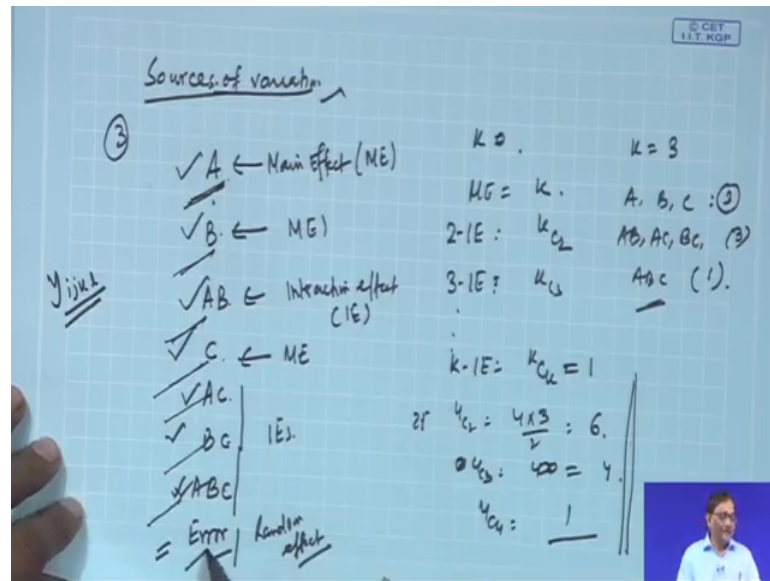 © CET
I.I.T. KGP
Sources of variation
③
A ← Main Effect (ME)
B. ← ME)
Yijkl
AB ← Interaction effect
(IE)
C. ← ME
AC.
BC
ABC
IEs.
= Error
Random
effect
K
ME = K.
2-IE : KC2
3-IE : KC3
⋮
K-IE : KCK = 1
4C2 : 4×3/2 : 6.
4C3 : = 4.
4C4 : 1
K = 3
A, B, C : ③
AB, AC, BC, (3)
ABC (1).